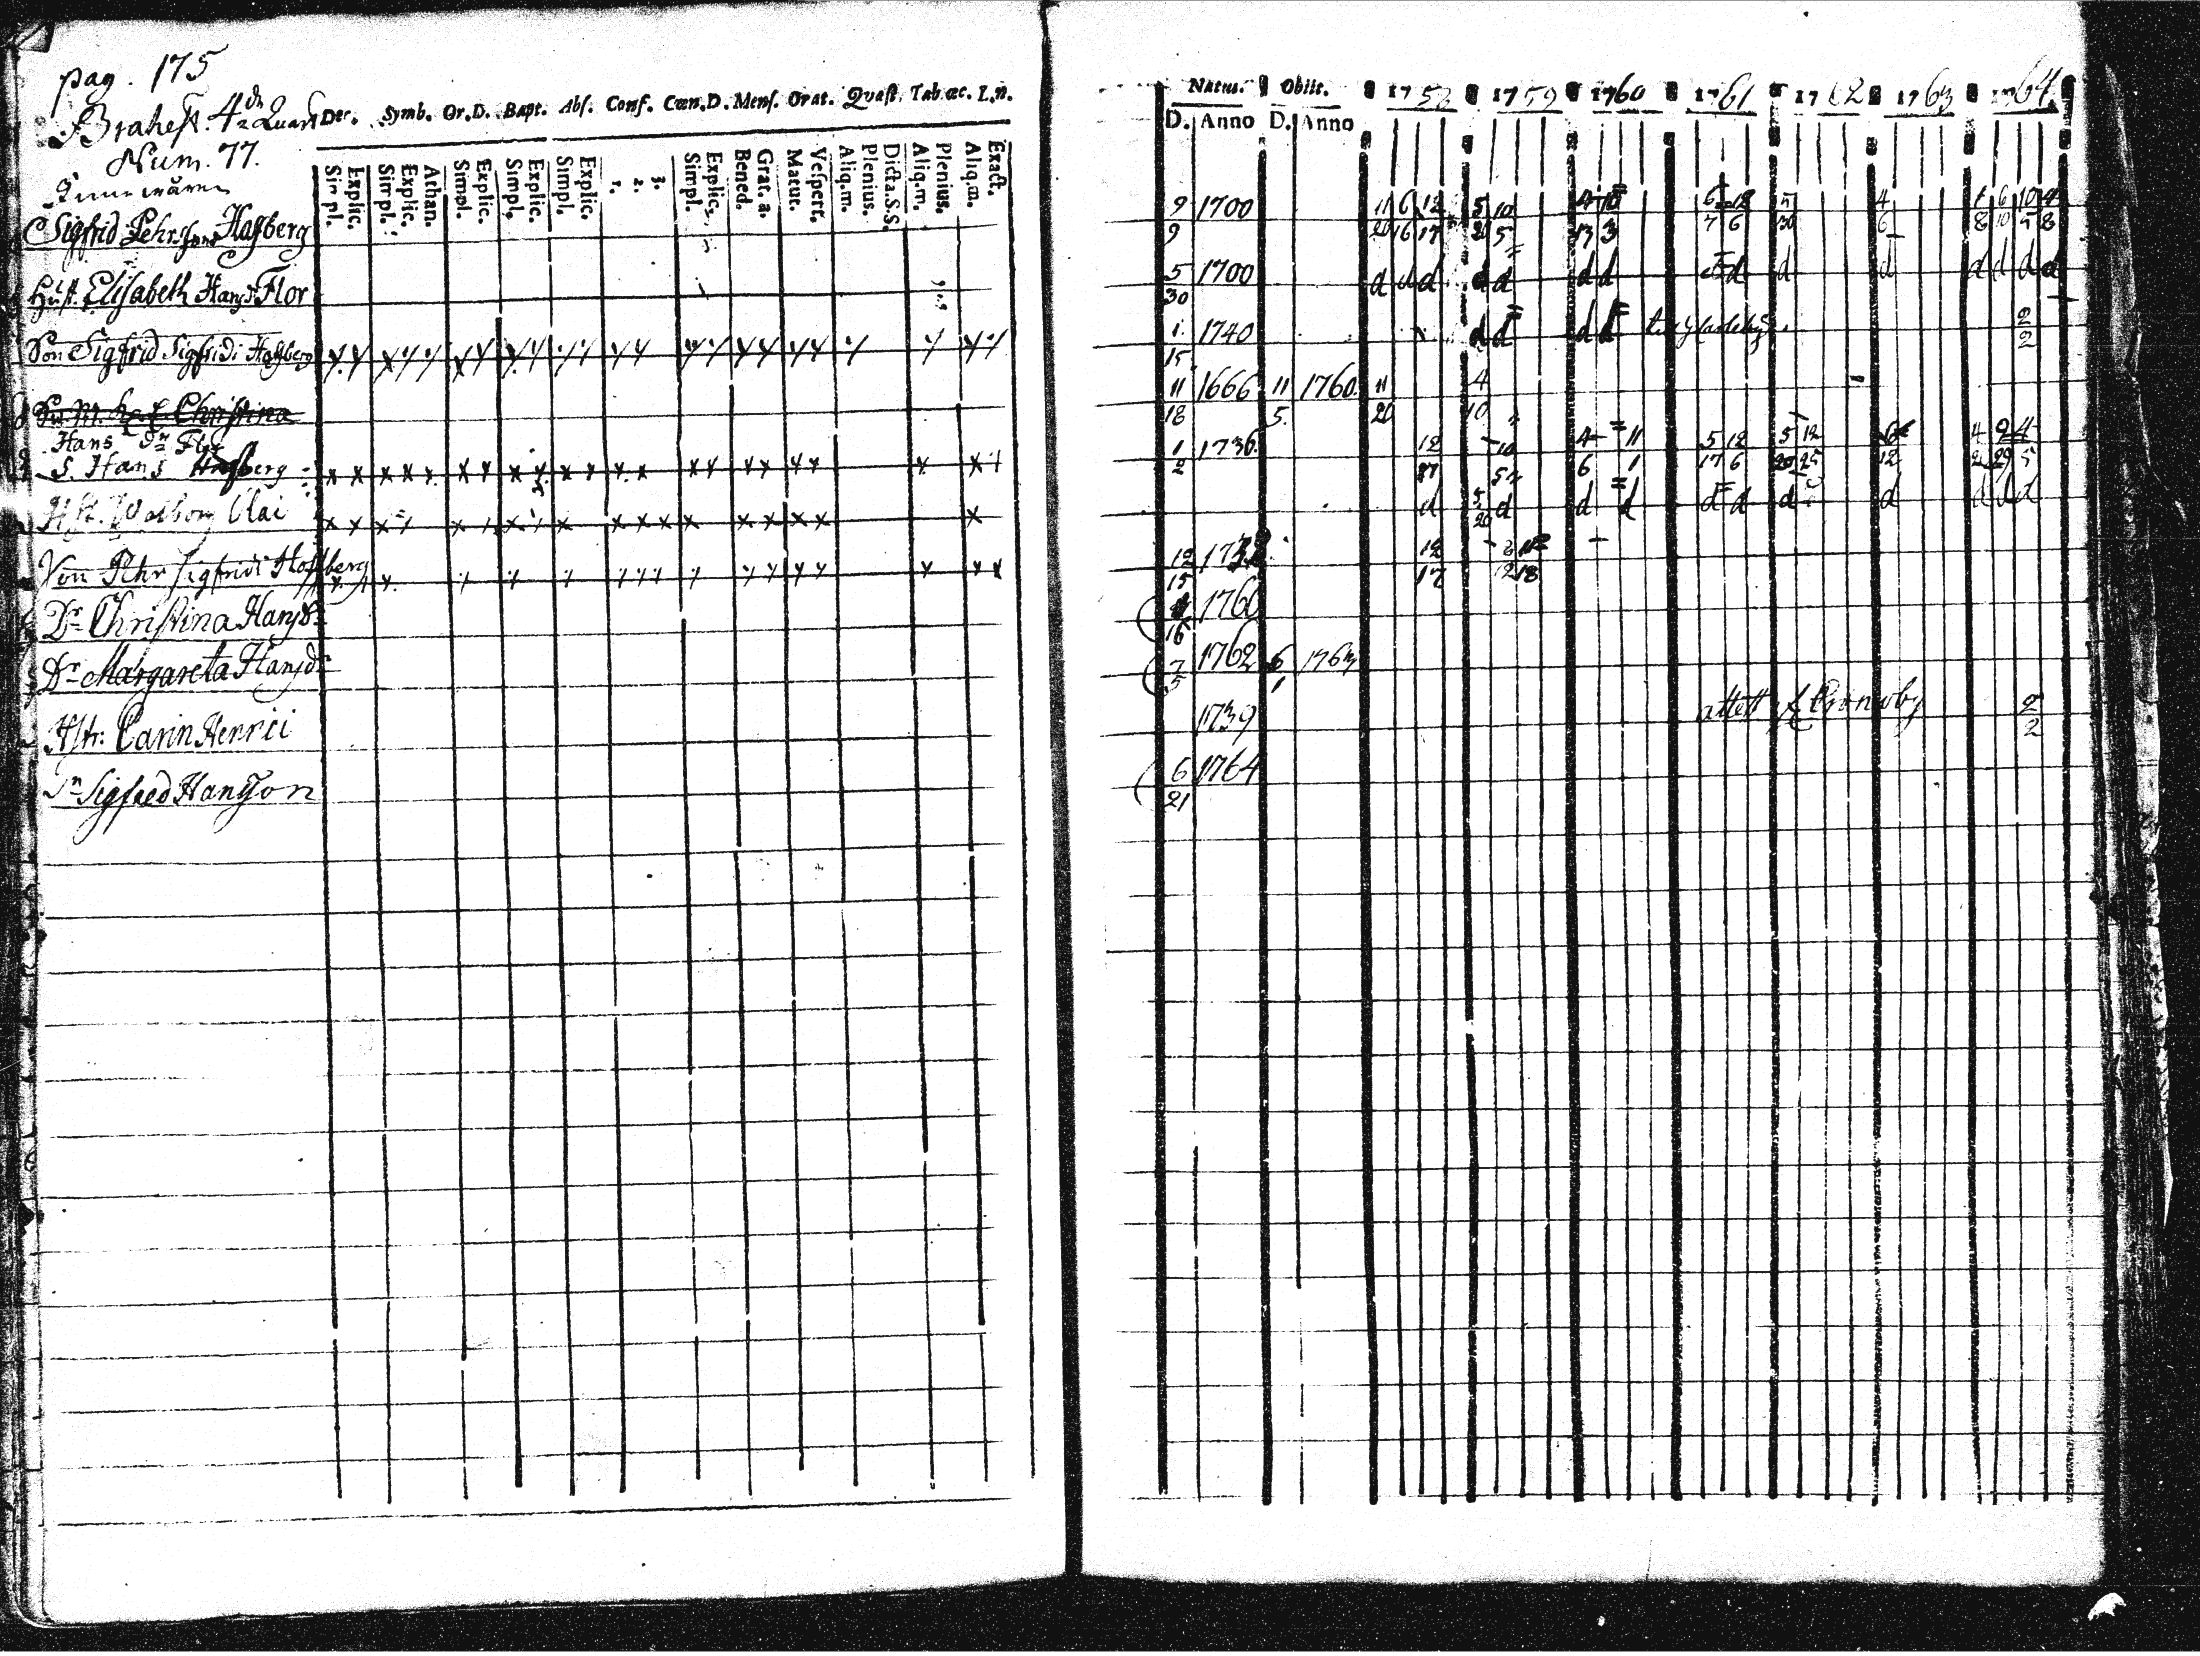 pag. 175
Brahest. 4de Quart
Num. 77.
Dec. Symb. Or.D. Bapt. Abs. Conf. Cœn.D. Mens. Orat. Qvæst. Tab.œc. L.n.
Simpl. Explic. Simpl. Explic. Athan. Simpl. Explic. Simpl. Explic. Simpl. Explic. 1. 2. 3. Simpl. Explic. Bened. Grat. a. Matut. Vespert. Aliq.m. Plenius. Dicta.S.S. Aliq.m. Plenius. Aliq.m. Exact.
Sigfrid Pehrsson Hassberg
Hust. Elisabeth Hansdr Flor
Son Sigfrid Sigfridi Hassberg
Christina
Hans dr Flor
S. Hans Hassberg
Hst. Walborg Clai
Son Pehr Sigfridi Hassberg
Dr Christina Hansdr
Dr Margareta Hansdr
Hstr: Carin Henrici
Sn Sigfred Hansson
Natus. Obiit. 1758 1759 1760 1761 1762 1763 1764
D. Anno D. Anno
9 1700 11 6 12 5 10 4 10 6 12 5 4 1 6 10 4
9 20 16 17 5 13 3 7 6 30 6 8 10 5 8
5 1700 d d d d d d d d d d d d d d
30
1 1740 d d d d 2
15 2
11 1666 11 1760 11 4
18 5. 20 10
1 1736 12 10 4 11 5 12 5 12 4 9 4
2 5 6 1 17 6 20 25 12 2 29 5
d 5 d d d d d d d d d d
20
12 12
15 17 12 18
1760
16
7 1762 6 1763
5 1
1739 attest 2
2
6 1764
21